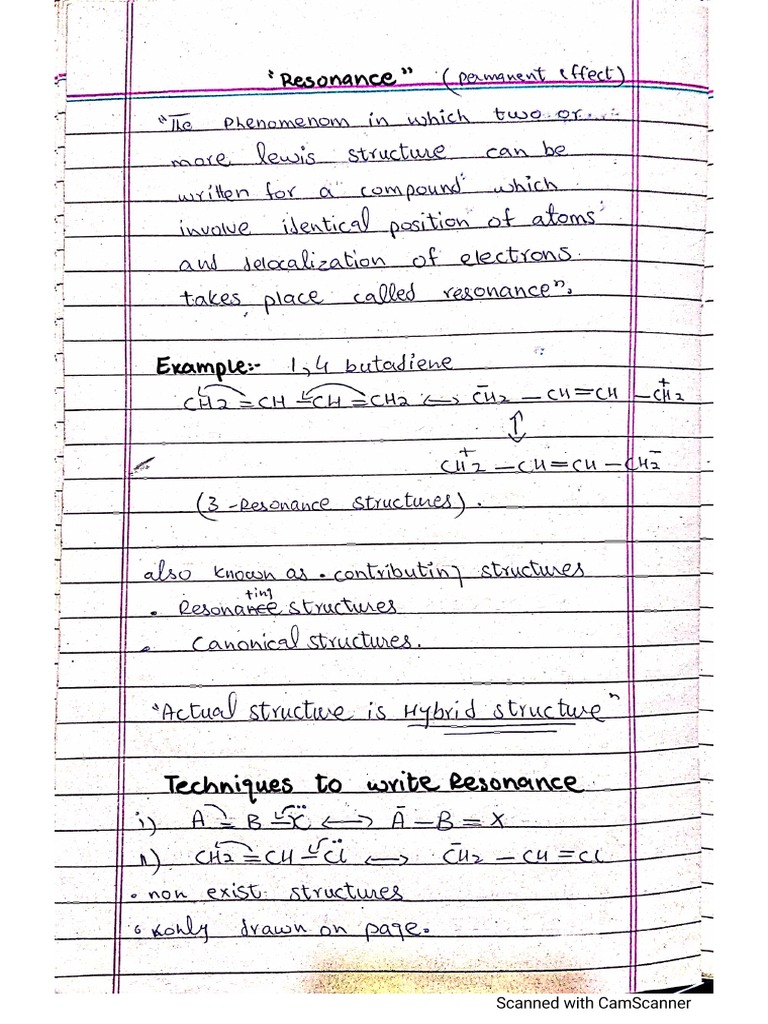 "Resonance" (permanent effect)
"The Phenomenom in which two or
more lewis structure can be
written for a compound which
involve identical position of atoms
and delocalization of electrons.
takes place called resonance".
Example:- 1,4 butadiene
CH2 = CH – CH = CH2 ⟷ C̄H2 – CH = CH – C⁺H2
↕
C⁺H2 – CH = CH – C̄H2
(3 - Resonance structures).
also known as • contributing structures
ting
• Resonance structures
• Canonical structures.
"Actual structure is Hybrid structure"
Techniques to write Resonance
i) A = B – Ẍ ⟷ Ā – B = X
CH2 = CH – C̈l ⟷ C̄H2 – CH = Cl
• non exist structures
• only drawn on page.
Scanned with CamScanner